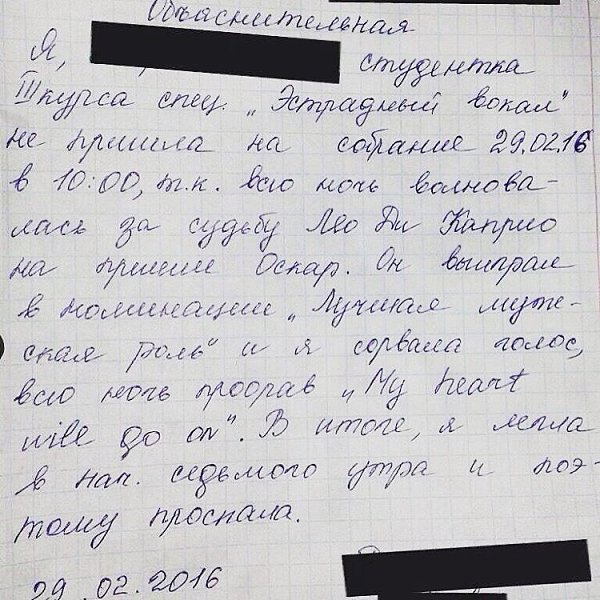 Объяснительная
Я, студентка
III курса спец. „Эстрадный вокал"
не пришла на собрание 29.02.16
в 10:00, т.к. всю ночь волнова-
лась за судьбу Лео Ди Каприо
на премии Оскар. Он выиграл
в номинации „Лучшая муж-
ская роль" и я сорвала голос,
всю ночь проорав „My heart
will go on". В итоге, я легла
в нач. седьмого утра и поэ-
тому проспала.
29.02.2016